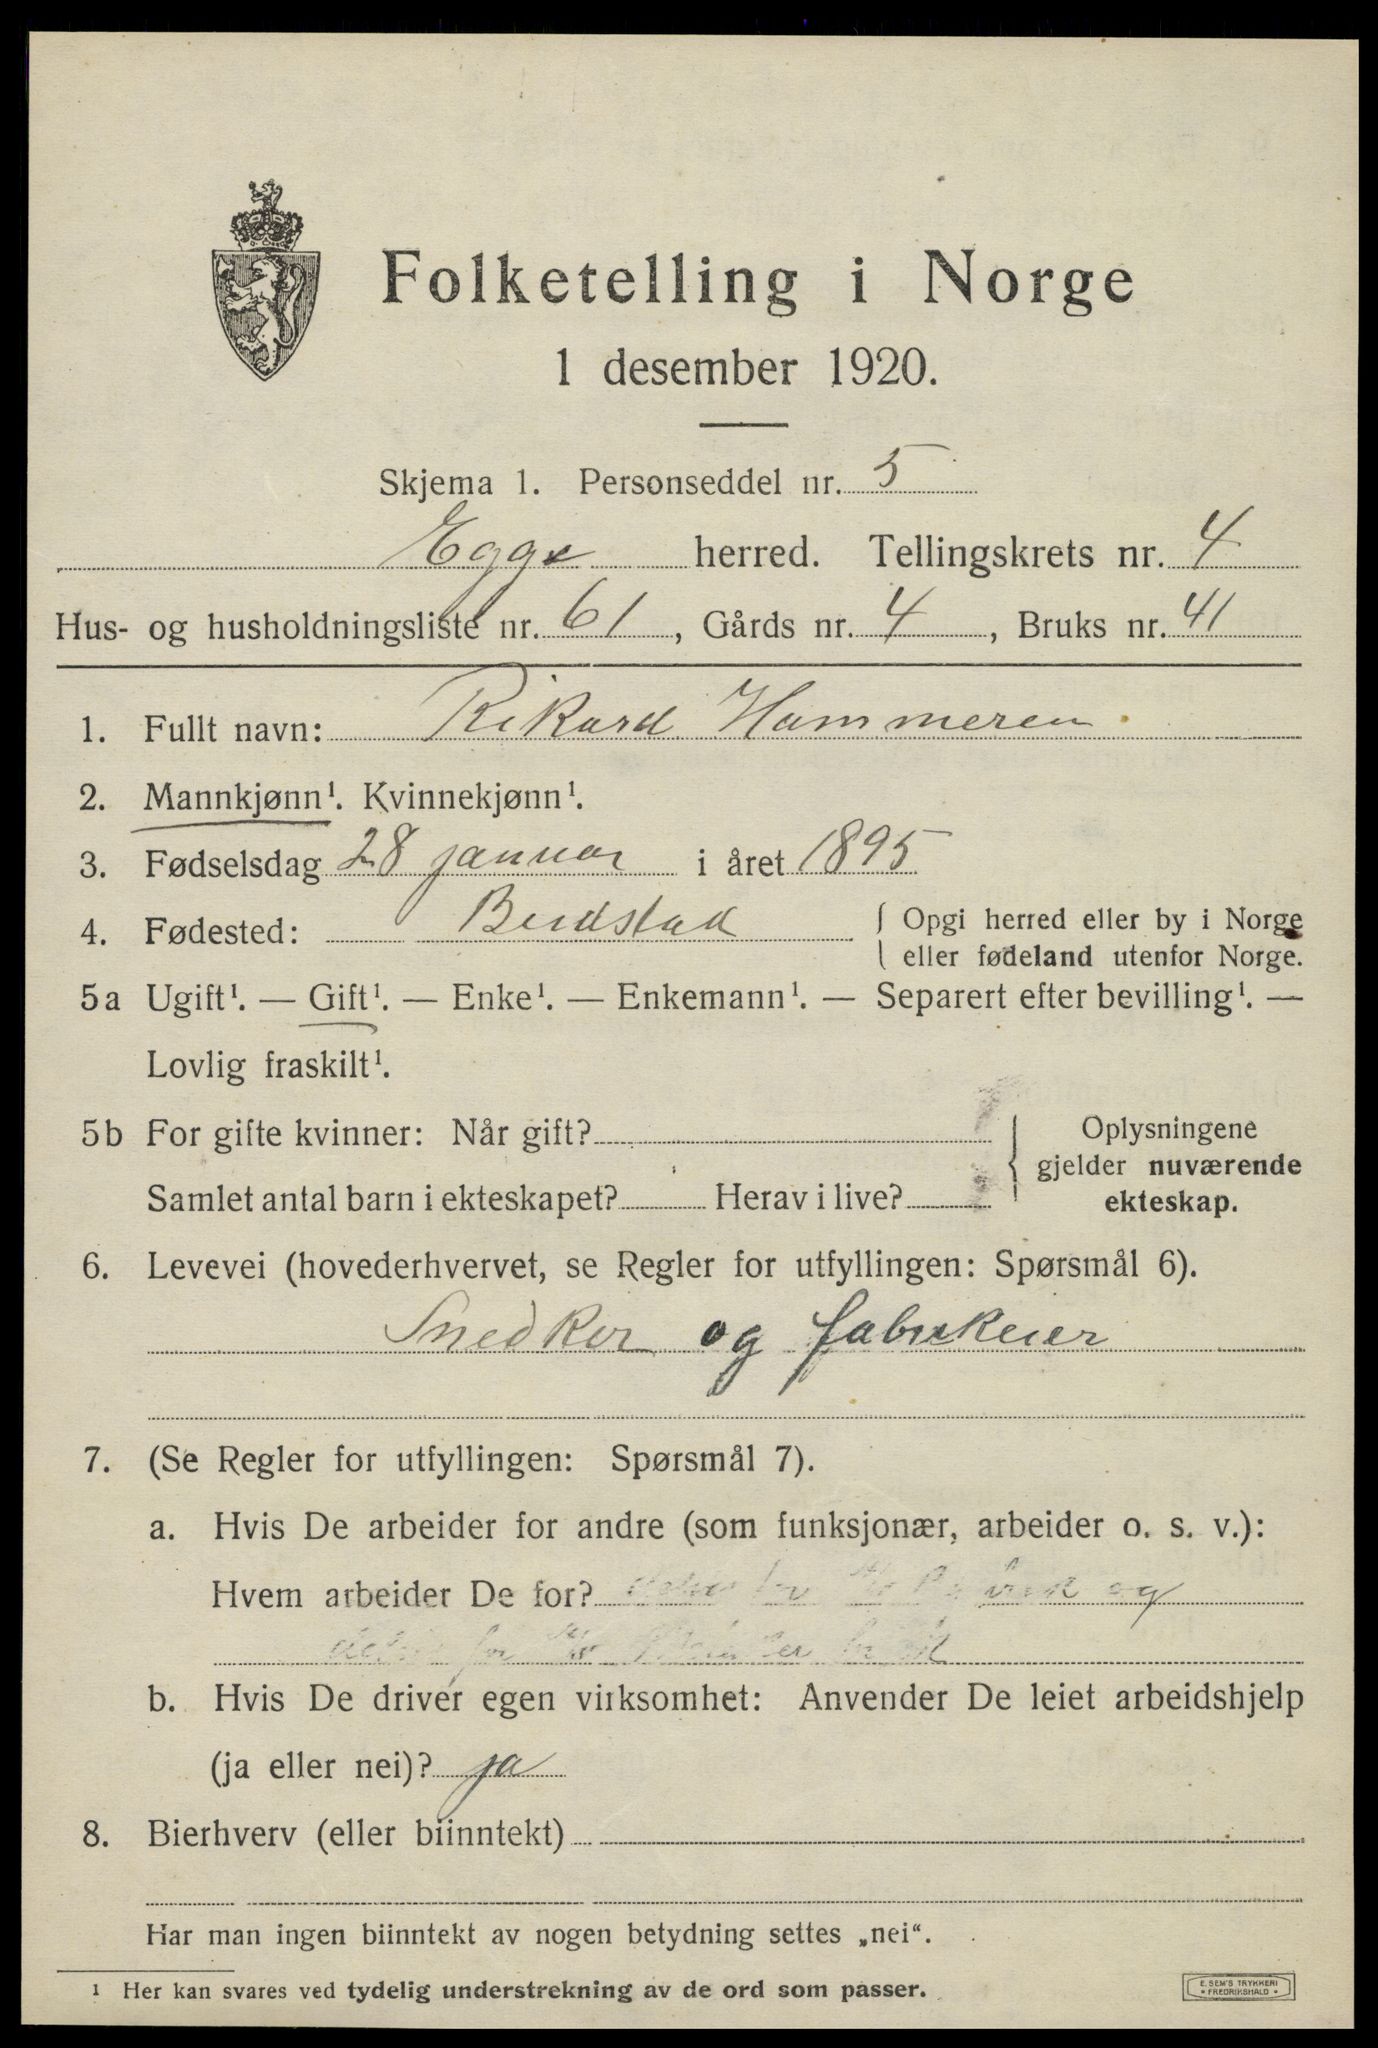 Folketelling i Norge
1 desember 1920.
Skjema 1. Personseddel nr. 5
Egge herred. Tellingskrets nr. 4
Hus- og husholdningsliste nr. 61, Gårds nr. 4, Bruks nr. 41
1. Fullt navn: Rikard Hammeren
2. Mannkjønn¹. Kvinnekjønn¹.
3. Fødselsdag 28 januar i året 1895
4. Fødested: Beidstad { Opgi herred eller by i Norge
eller fødeland utenfor Norge.
5a Ugift¹. — Gift¹. — Enke¹. — Enkemann¹. — Separert efter bevilling¹. —
Lovlig fraskilt¹.
5b For gifte kvinner: Når gift?
Samlet antal barn i ekteskapet? Herav i live?
{ Oplysningene
gjelder nuværende
ekteskap.
6. Levevei (hovederhvervet, se Regler for utfyllingen: Spørsmål 6).
Snedker og fabrikeier
7. (Se Regler for utfyllingen: Spørsmål 7).
a. Hvis De arbeider for andre (som funksjonær, arbeider o. s. v.):
Hvem arbeider De for? og
for
b. Hvis De driver egen virksomhet: Anvender De leiet arbeidshjelp
(ja eller nei)? ja
8. Bierhverv (eller biinntekt)
Har man ingen biinntekt av nogen betydning settes „nei“.
¹ Her kan svares ved tydelig understrekning av de ord som passer.
E. SEM'S TRYKKERI
FREDRIKSHALD